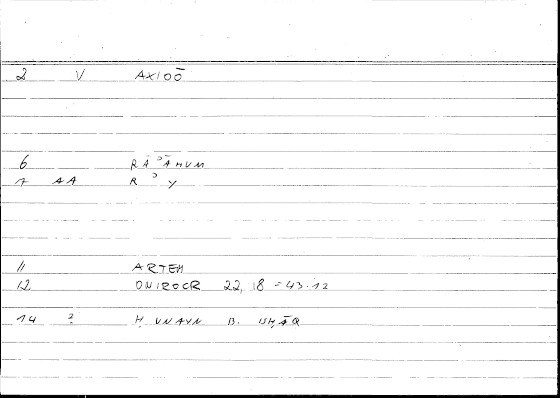 2 V AXIOŌ
6 RAʾĀHUM
7 AA R ʾ Y
11 ARTEM
12 ONIROCR 22, 18 = 43.12
14 ? Ḥ UNAYN B. ISḤĀQ